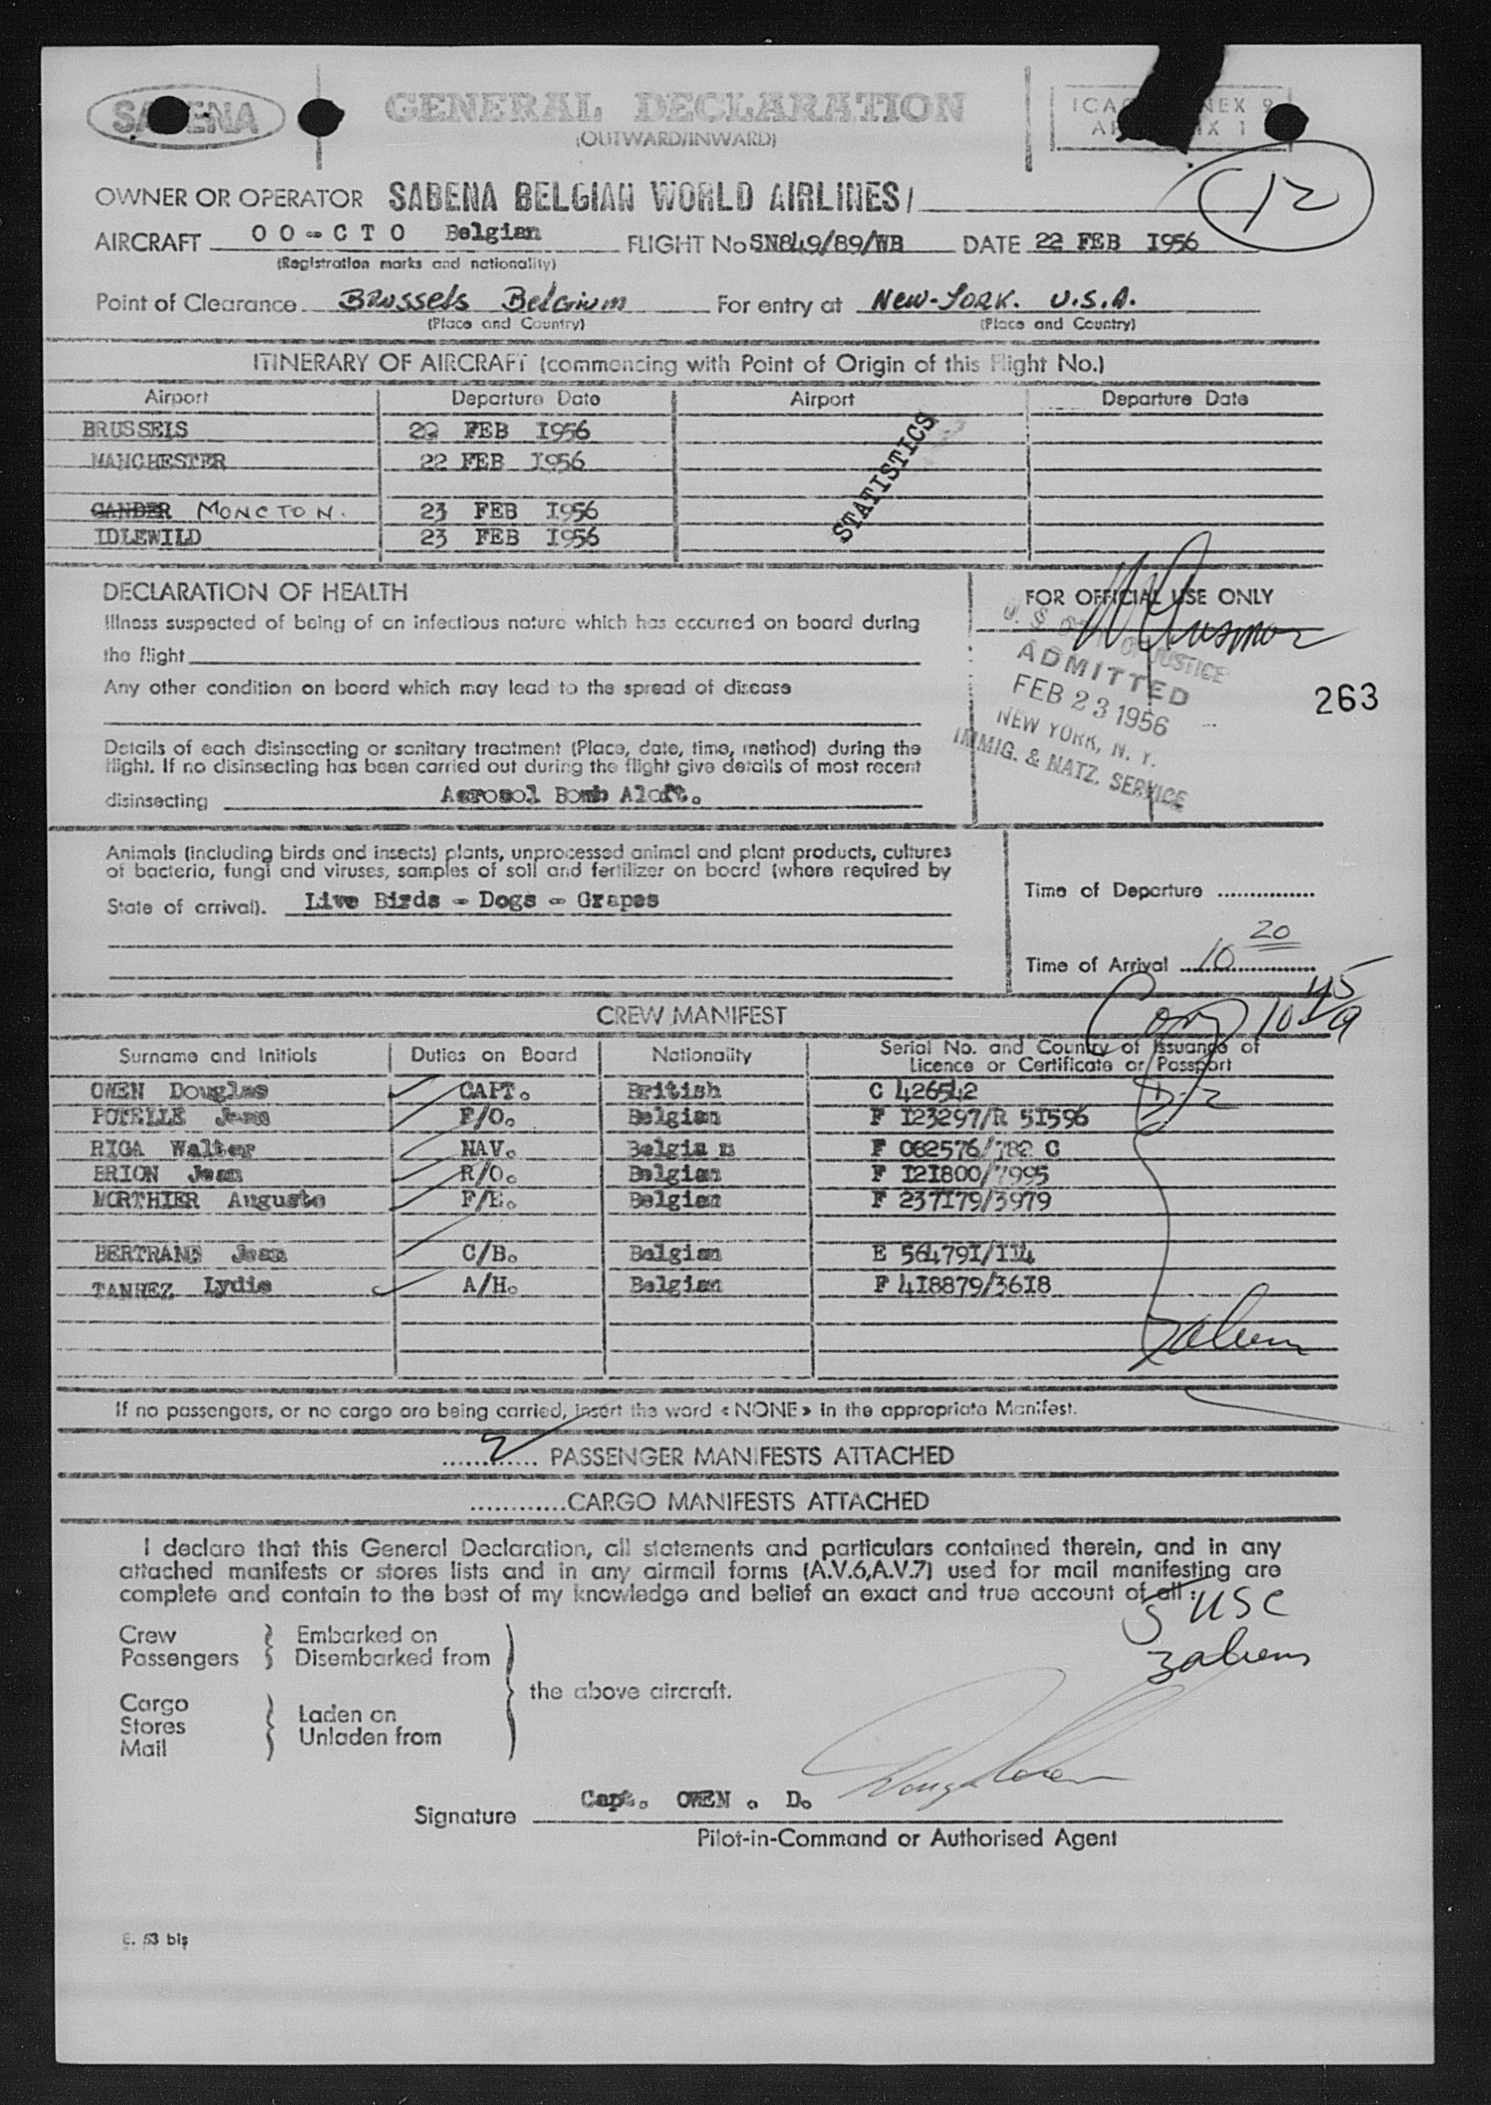 SABENA GENERAL DECLARATION
(OUTWARD/INWARD)
OWNER OR OPERATOR SABENA BELGIAN WORLD AIRLINES/
12
AIRCRAFT OO-CTO Belgian FLIGHT No SN849/89/WB DATE 22 FEB 1956
(Registration marks and nationality)
Point of Clearance Brussels Belgium For entry at New-York. U.S.A.
(Place and Country) (Place and Country)
ITINERARY OF AIRCRAFT (commencing with Point of Origin of this Flight No.)
Airport Departure Date Airport Departure Date
BRUSSELS 22 FEB 1956
MANCHESTER 22 FEB 1956
GANDER MONCTON. 23 FEB 1956
IDLEWILD 23 FEB 1956
STATISTICS
DECLARATION OF HEALTH
Illness suspected of being of an infectious nature which has occurred on board during
the flight
Any other condition on board which may lead to the spread of disease
Details of each disinsecting or sanitary treatment (Place, date, time, method) during the
flight. If no disinsecting has been carried out during the flight give details of most recent
disinsecting Aerosol Bomb Aloft.
FOR OFFICIAL USE ONLY
U. S. DEPT. OF JUSTICE
ADMITTED
FEB 23 1956
NEW YORK, N. Y.
IMMIG. & NATZ. SERVICE
263
Animals (including birds and insects) plants, unprocessed animal and plant products, cultures
of bacteria, fungi and viruses, samples of soil and fertilizer on board (where required by
State of arrival). Live Birds - Dogs - Grapes
Time of Departure
Time of Arrival 10 20
10 45
CREW MANIFEST
Surname and Initials Duties on Board Nationality Serial No. and Country of Issuance of
Licence or Certificate or Passport
OWEN Douglas CAPT. British C 426542
POTELLE Jean F/O. Belgian F 123297/R 51596
RIGA Walter NAV. Belgian F 082576/782 C
BRION Jean R/O. Belgian F 121800/7995
MORTHIER Auguste F/E. Belgian F 237179/3979
BERTRAND Jean C/B. Belgian E 564791/114
TANREZ Lydie A/H. Belgian F 418879/3618
If no passengers, or no cargo are being carried, insert the word « NONE » in the appropriate Manifest.
2 PASSENGER MANIFESTS ATTACHED
CARGO MANIFESTS ATTACHED
I declare that this General Declaration, all statements and particulars contained therein, and in any
attached manifests or stores lists and in any airmail forms (A.V.6,A.V.7) used for mail manifesting are
complete and contain to the best of my knowledge and belief an exact and true account of all :
5 USC
Crew Embarked on
Passengers Disembarked from
the above aircraft.
Cargo
Stores Laden on
Mail Unladen from
Signature Capt. OWEN . D.
Pilot-in-Command or Authorised Agent
E. 53 bis